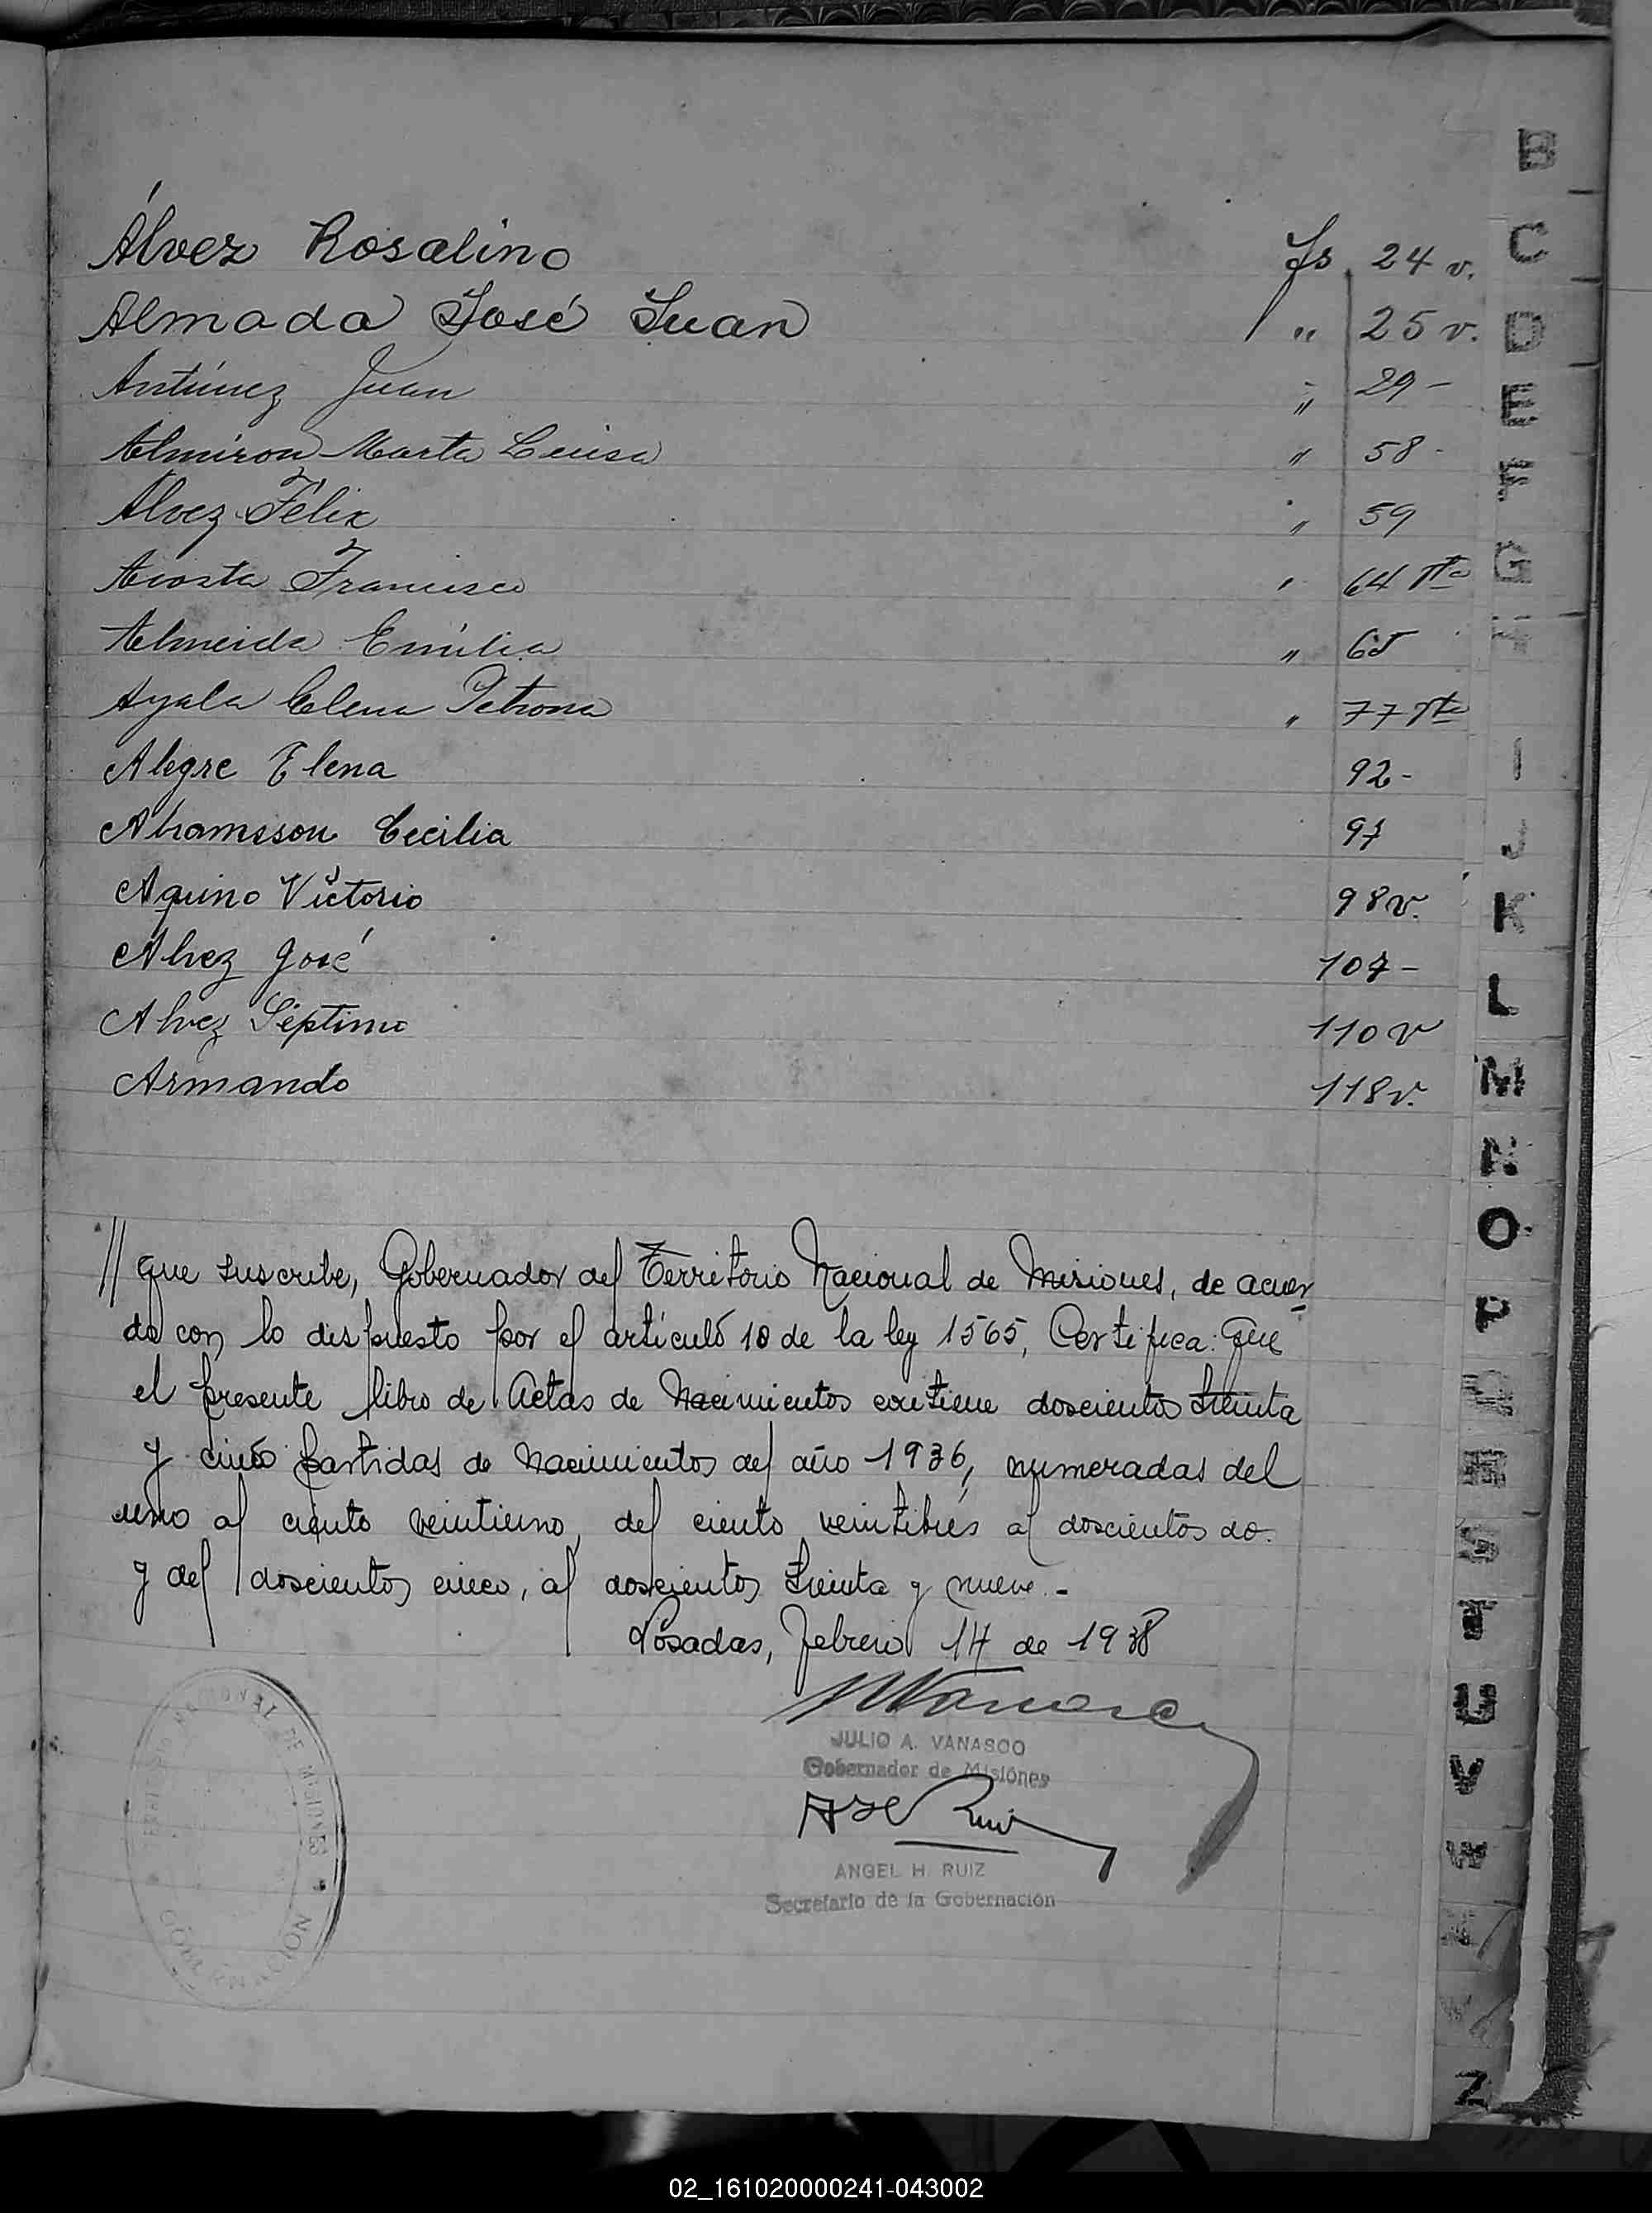 Álvez Rosalino fs. 24 v.
Almada José Juan " 25 v.
Antúnez Juan " 29 -
Almiron Marta Luisa " 58 -
Álvez Félix " 59
Acosta Francisco " 64 vta
Almeida Emilia " 65
Ayala Elena Petrona " 77 vta
Alegre Elena 92 -
Abramsson Cecilia 97
Aquino Victorio 98 v.
Alvez José 107 -
Alvez Séptimo 110 v
Armando 118 v.
// que suscribe, Gobernador del Territorio Nacional de Misiones, de acuer
do con lo dispuesto por el artículo 10 de la ley 1565, Certifica: Que
el presente libro de Actas de Nacimientos contiene doscientos treinta
y cinco partidas de nacimientos del año 1936, numeradas del
uno al ciento veintiuno, del ciento veintitrés al doscientos dos
y del doscientos cinco, al doscientos treinta y nueve. -
Posadas, Febrero 14 de 1938
JULIO A. VANASCO
Gobernador de Misiones
ANGEL H. RUIZ
Secretario de la Gobernación
TERRITORIO NACIONAL DE MISIONES
GOBERNACION
B
C
D
E
F
G
H
I
J
K
L
M
N
O
P
Q
R
S
T
U
V
W
Z
02_161020000241-043002